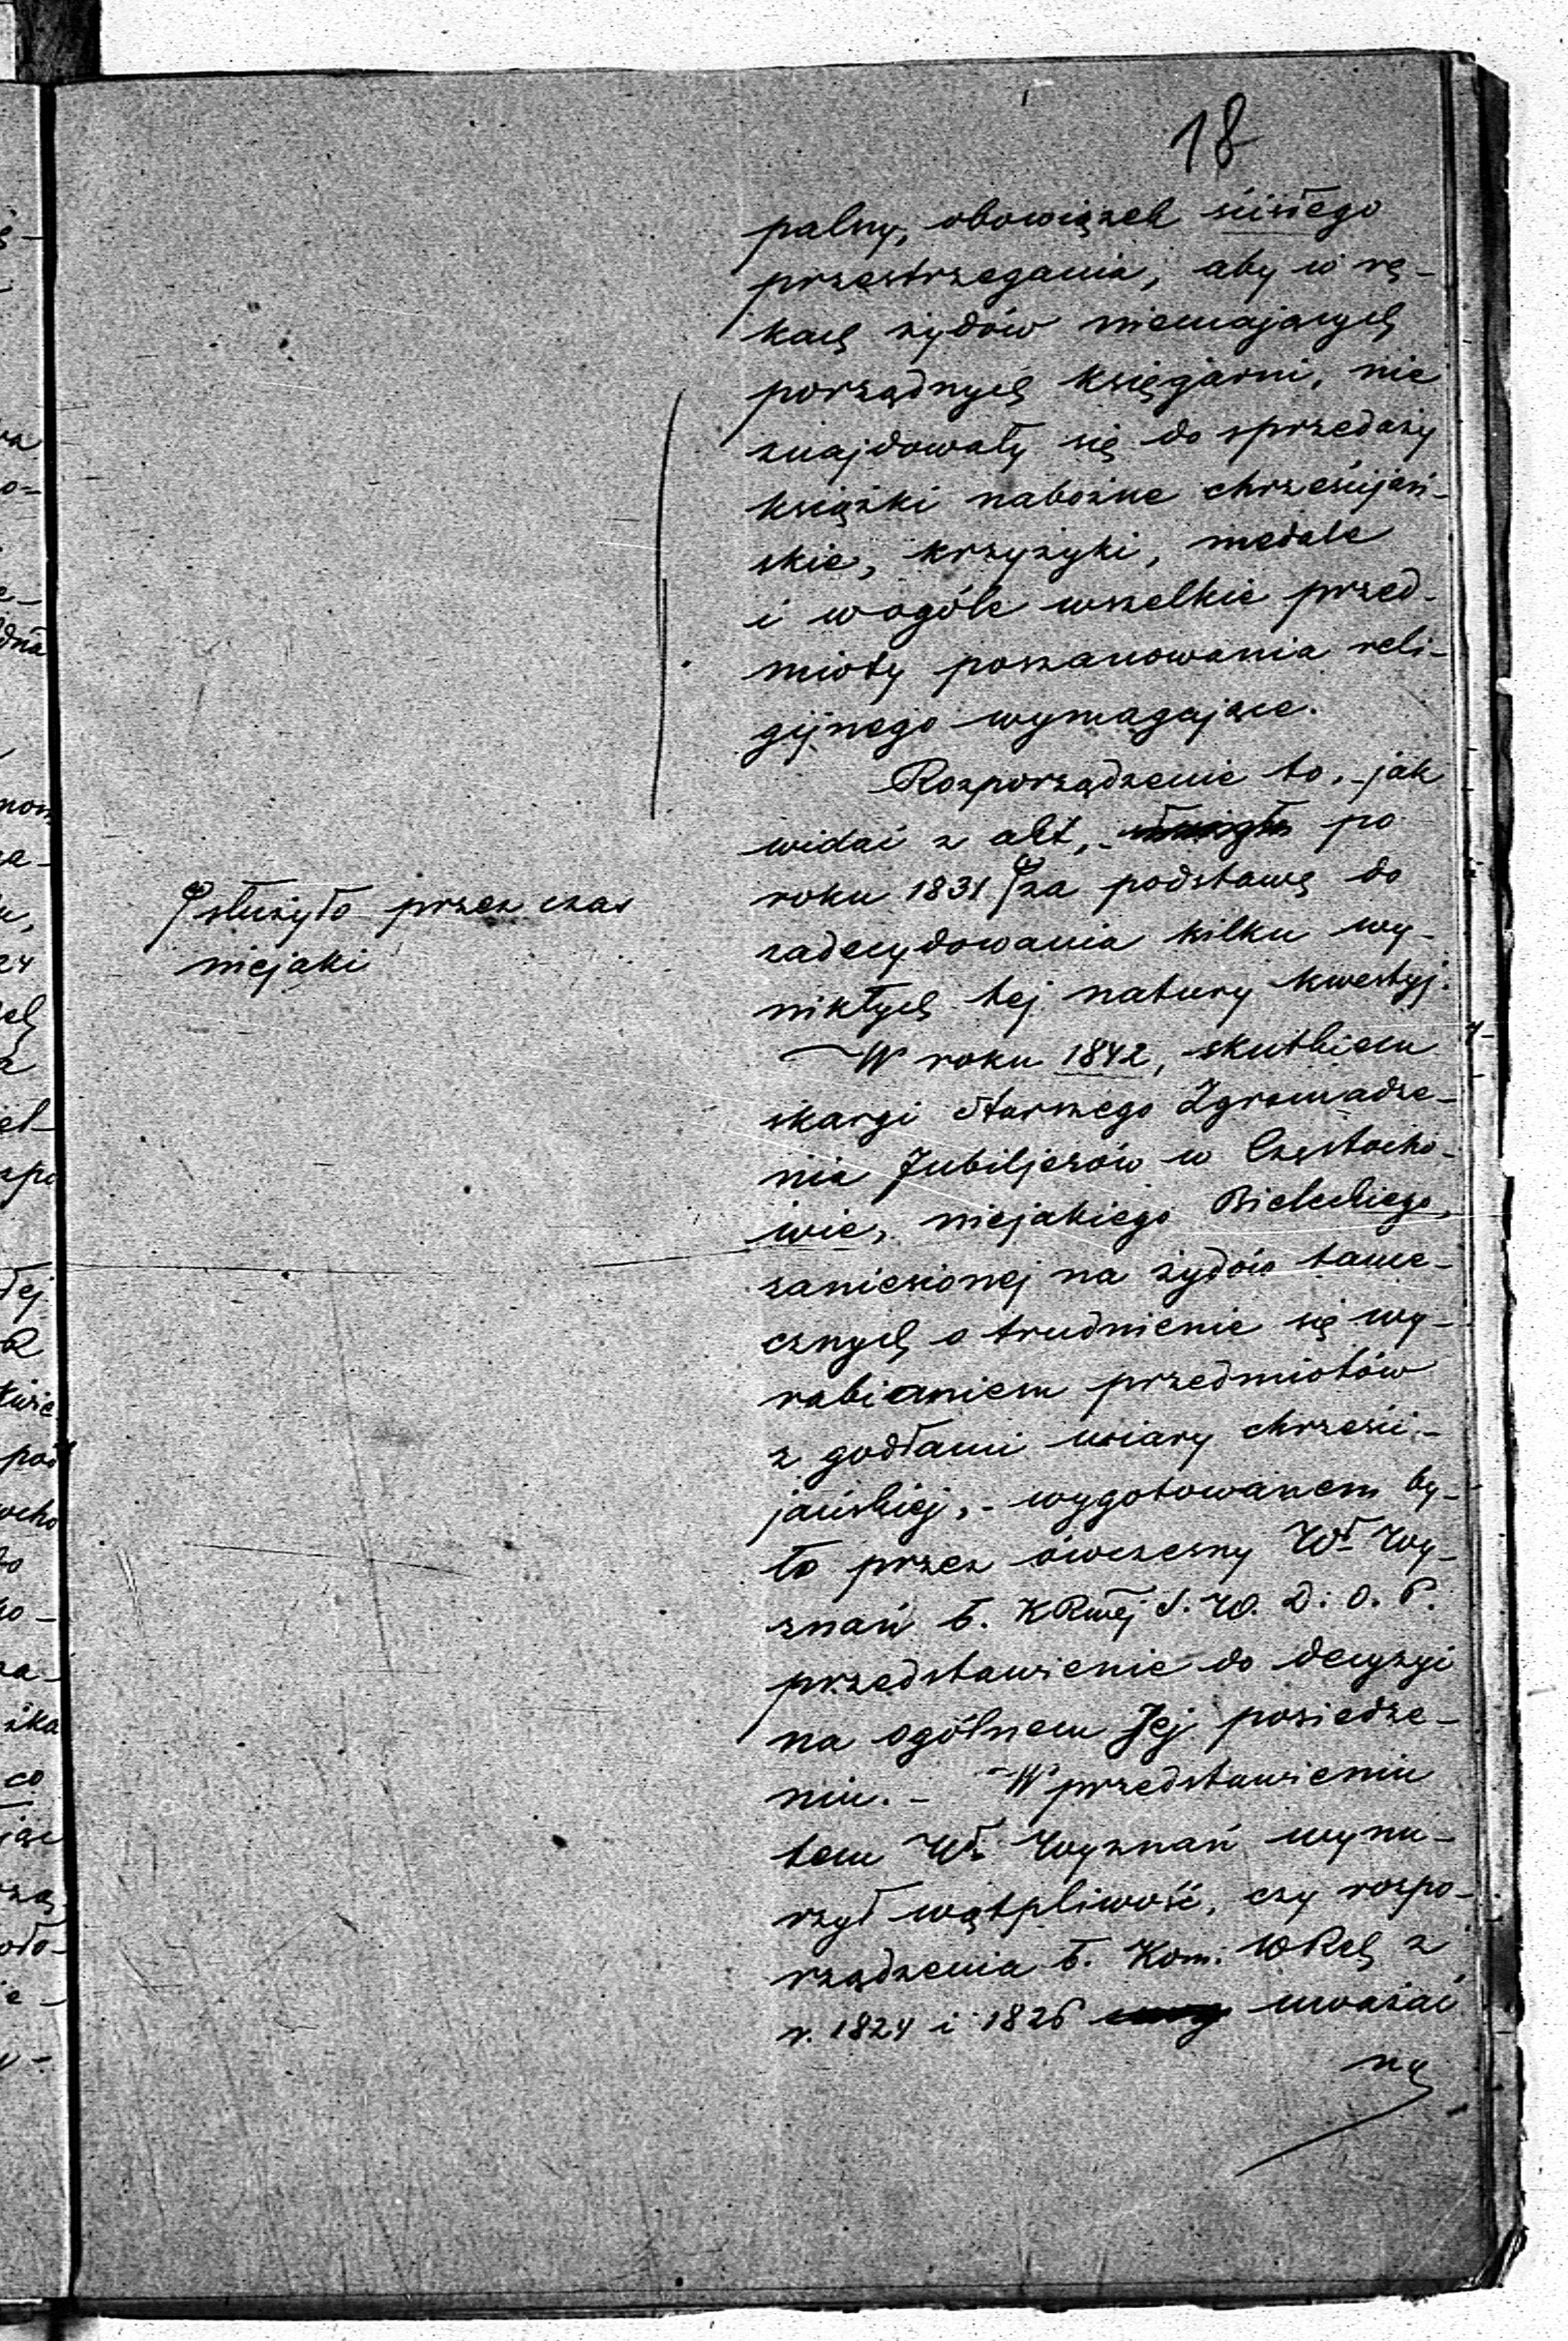 18
palny, obowiązek ścisłego
przestrzegania, aby w rę-
kach żydów niemających
porządnych księgarni, nie
znajdowały się do sprzedaży
książki nabożne chrześcijań-
skie, krzyżyki, medale
i w ogóle wszelkie przed-
mioty poszanowania reli-
gijnego wymagające.
Rozporządzenie to, - jak
widać z akt, - po
roku 1831 za podstawę do
służyło przez czas
niejaki
zadecydowania kilku wy-
nikłych tej natury kwestyj.
W roku 1842, skutkiem
skargi Starszego Zgromadze-
nia Jubiljerów w Częstocho-
wie, niejakiego Bieleckiego,
zaniesionej na żydów tame-
cznych o trudnienie się wy-
rabianiem przedmiotów
z godłami wiary chrześci-
jańskiej, - wygotowanem by-
ło przez ówczesny Wł Wy-
znań b. KRwéj S. W. D. i O. P.
przedstawienie do decyzyi
na ogólnem Jej posiedze-
niu. - W przedstawieniu
tem Wł Wyznań wynu-
rzył wątpliwość, czy rozpo-
rządzenia b. Kom. WRch z
r. 1824 i 1826 uważać